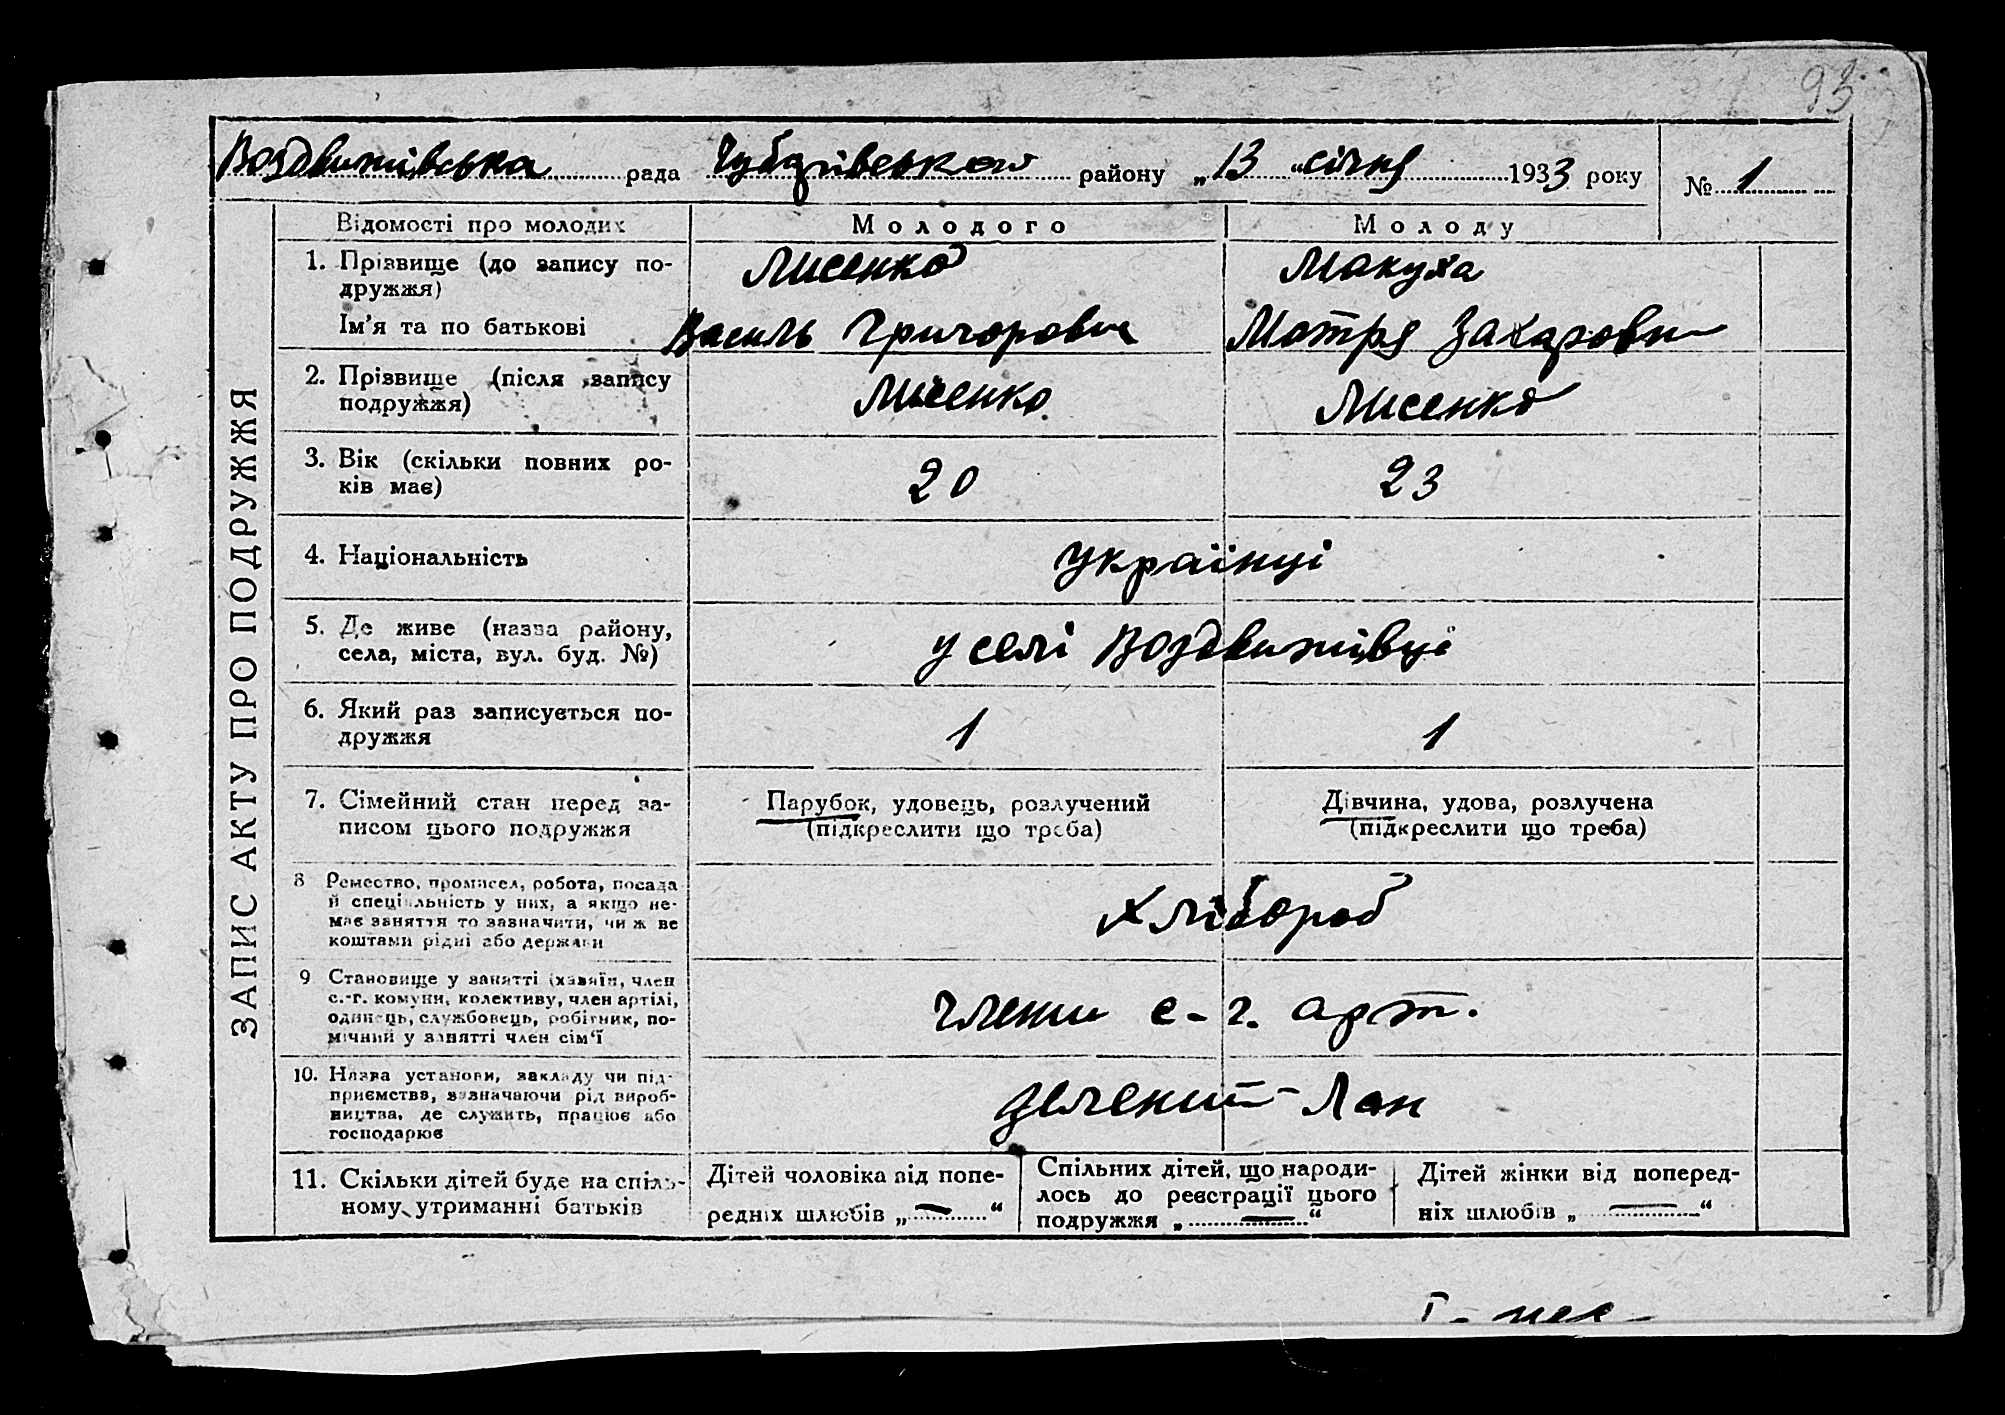 93
Воздвижівська рада Чубарівського району „13 "січня 1933 року № 1
ЗАПИС АКТУ ПРО ПОДРУЖЖЯ
Відомості про молодих
Молодого
Молоду
1. Прізвище (до запису по-
дружжя)
Лисенко
Макуха
Ім'я та по батькові
Василь Григорович
Мотря Захаровн
2. Прізвище (після запису
подружжя)
Лисенко
Лисенко
3. Вік (скільки повних ро-
ків має)
20
23
4. Національність
Українці
5. Де живе (назва району,
села, міста, вул. буд. №)
у селі Воздвижівці
6. Який раз записується по-
дружжя
1
1
7. Сімейний стан перед за-
писом цього подружжя
Парубок, удовець, розлучений
(підкреслити що треба)
Дівчина, удова, розлучена
(підкреслити що треба)
8 Ремество, промисел, робота, посада
й спеціальність у них, а якщо не-
має заняття то зазначити, чи ж ве
коштами рідні або держави
Хлібороб
9 Становище у занятті (хазяїн, член
с.-г. комуни, колективу, член артілі,
одинець, службовець, робітник, по-
мічний у занятті член сім'ї
члени с-г. арт.
10. Назва установи, закладу чи під-
приємства, зазначаючи рід вироб-
ництва, де служить, працює або
господарює
Зелений-Лан
11. Скільки дітей буде на спіль-
ному утриманні батьків
Дітей чоловіка від попе-
редніх шлюбів „ — “
Спільних дітей, що народи-
лось до реєстрації цього
подружжя „ — “
Дітей жінки від поперед-
ніх шлюбів „ — “